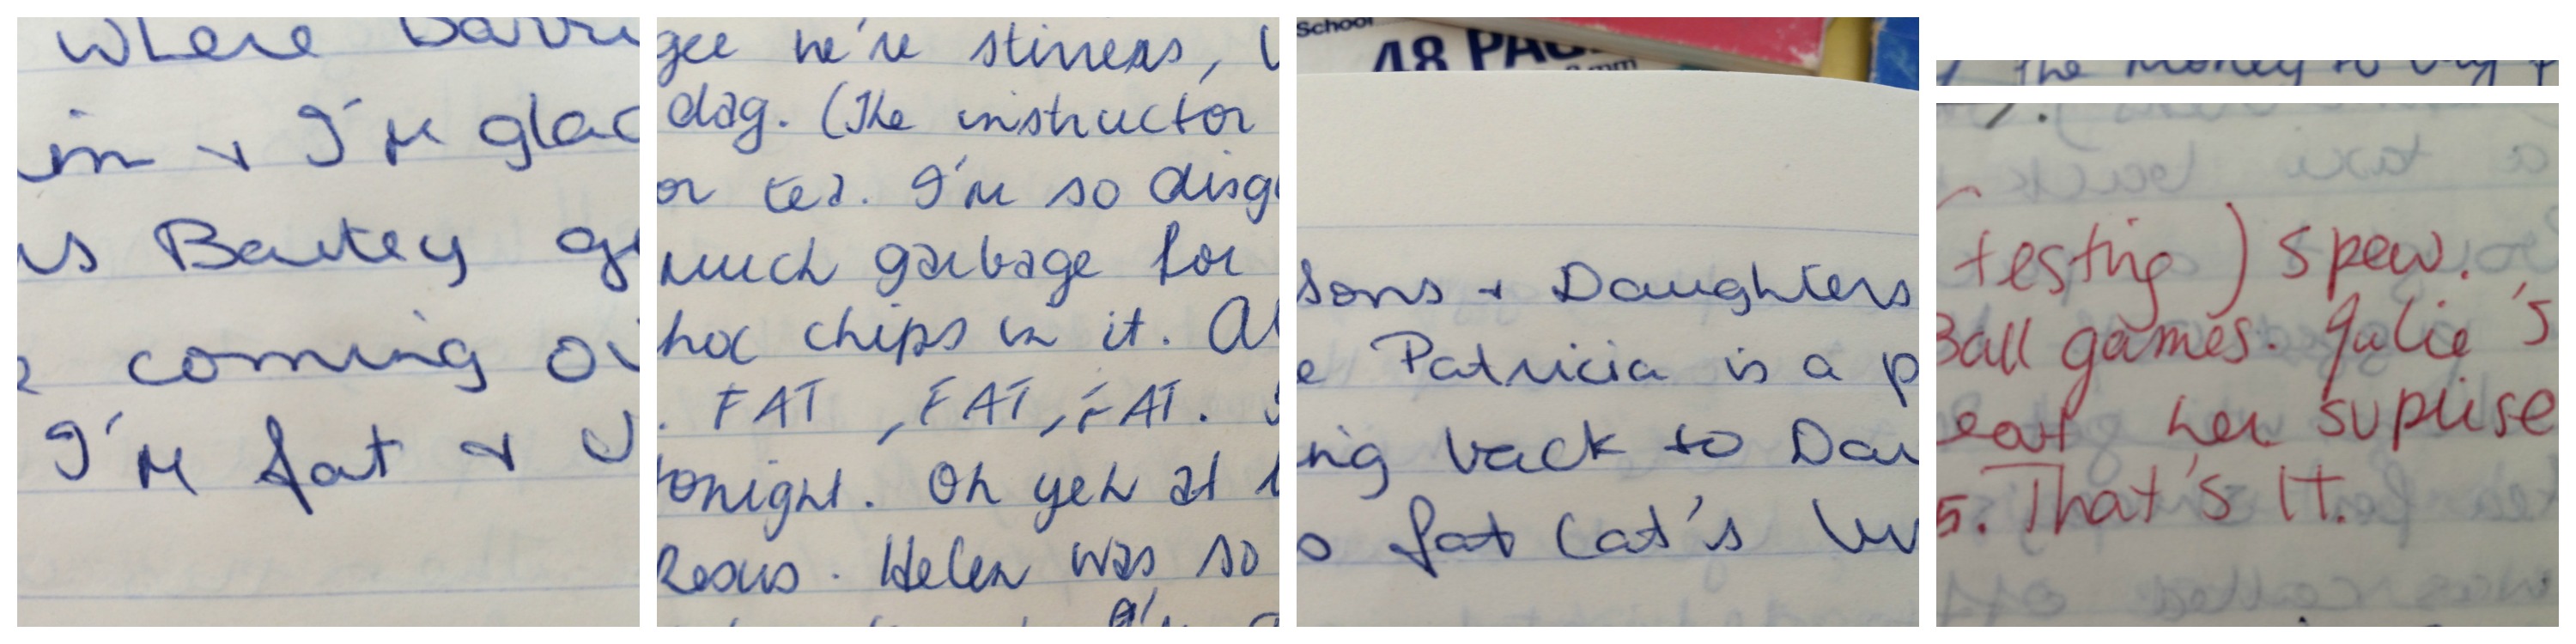 where Barri
in & I'm glad
is Bartey ge
coming ou
I'm fat &
gee he're stirrers,
dag. (The instructor
or ted. I'm so disgu
much garbage for
hoc chips in it. Al
. FAT, FAT, FAT.
tonight. Oh yeh at
Helen was so
School
48 PAG
mm
Sons & Daughters
e Patricia is a p
ing back to Da
o fat Cat's
the money to buy
testing) spew.
Ball games. Julie's
eat her suprise
5. That's it.